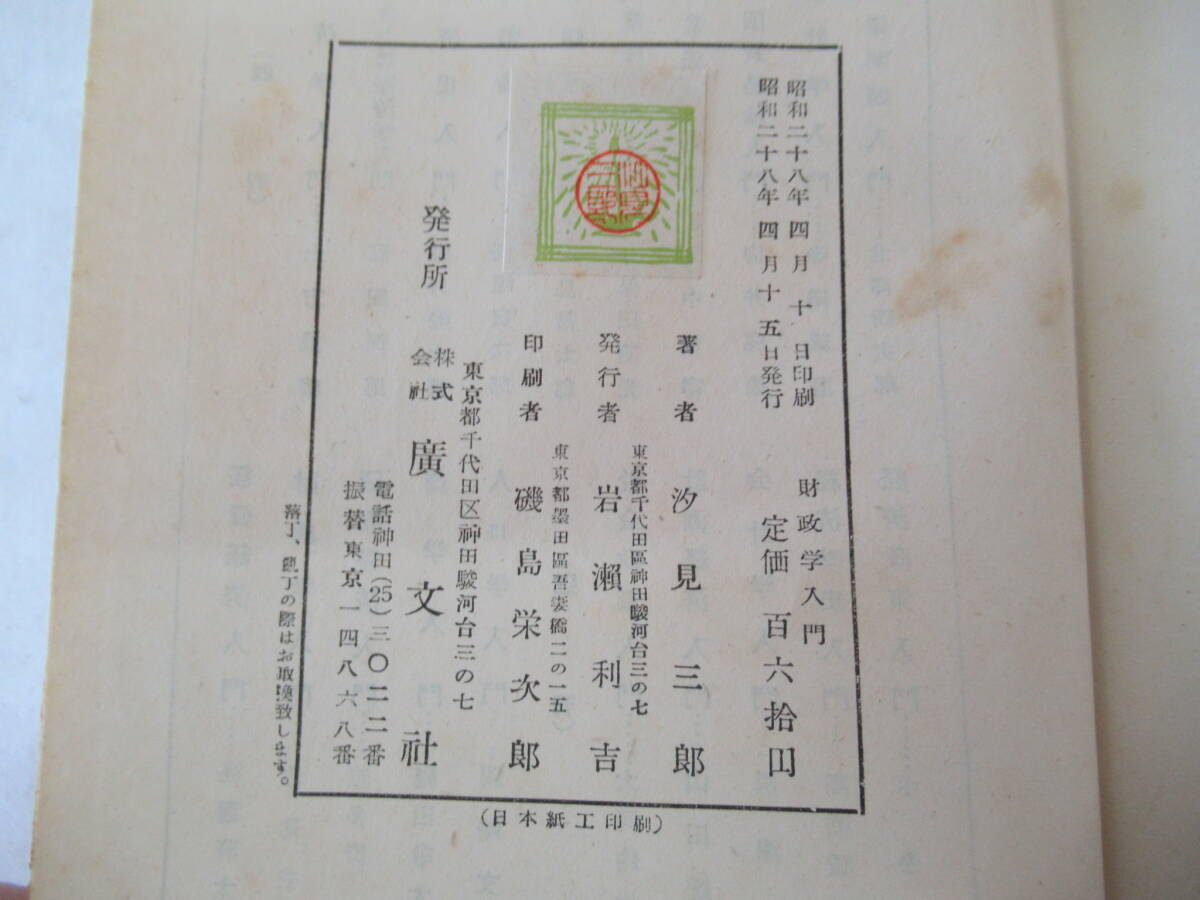 昭和二十八年四月　十　日印刷
昭和二十八年四月十五日発行
財政学入門
定価 百六拾円
著者 汐見三郎
東京都千代田區神田駿河台三の七
発行者 岩瀬利吉
東京都墨田區吾妻橋二の一五
印刷者 磯島栄次郎
東京都千代田区神田駿河台三の七
発行所 株式会社 廣文社
電話神田(25)三〇二二番
振替東京一四八六八番
落丁、乱丁の際はお取換致します。
(日本紙工印刷)